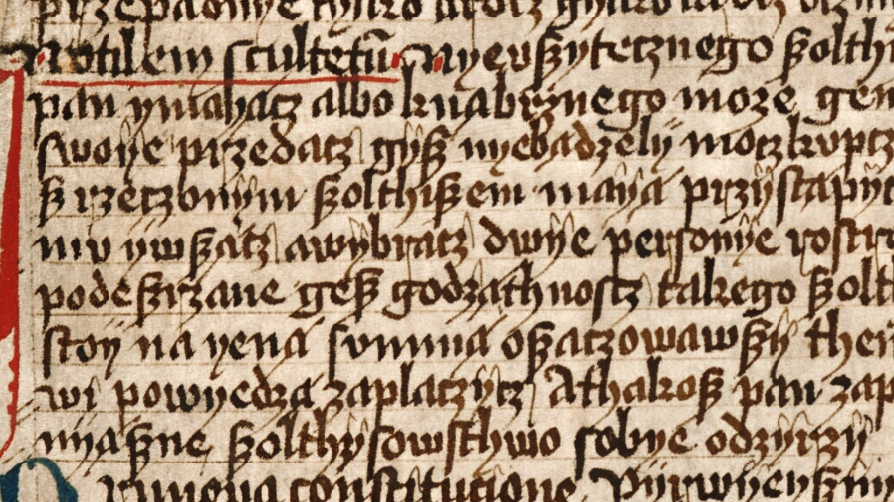 notilem scultetū nyevszytecznego szolth
pan ymahacz albo knabrznego moze gen
swoye przedacz gysz nyebądzely moczkvpcz
sz rzeczonym szolthiszem mayą przystąpy
mv ywszącz awybracz dwye personye rostr
podeszrzane gesz godzathnoscz takego szolt
stoy na yeną svmmą oszaczowawszy then
wi powyedzą zaplaczycz Athakosz pan zap
myaszne szolthysowsthwo sobye odzyrzy
constitucione pyrwyeyszm